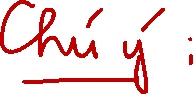 Chú ý :